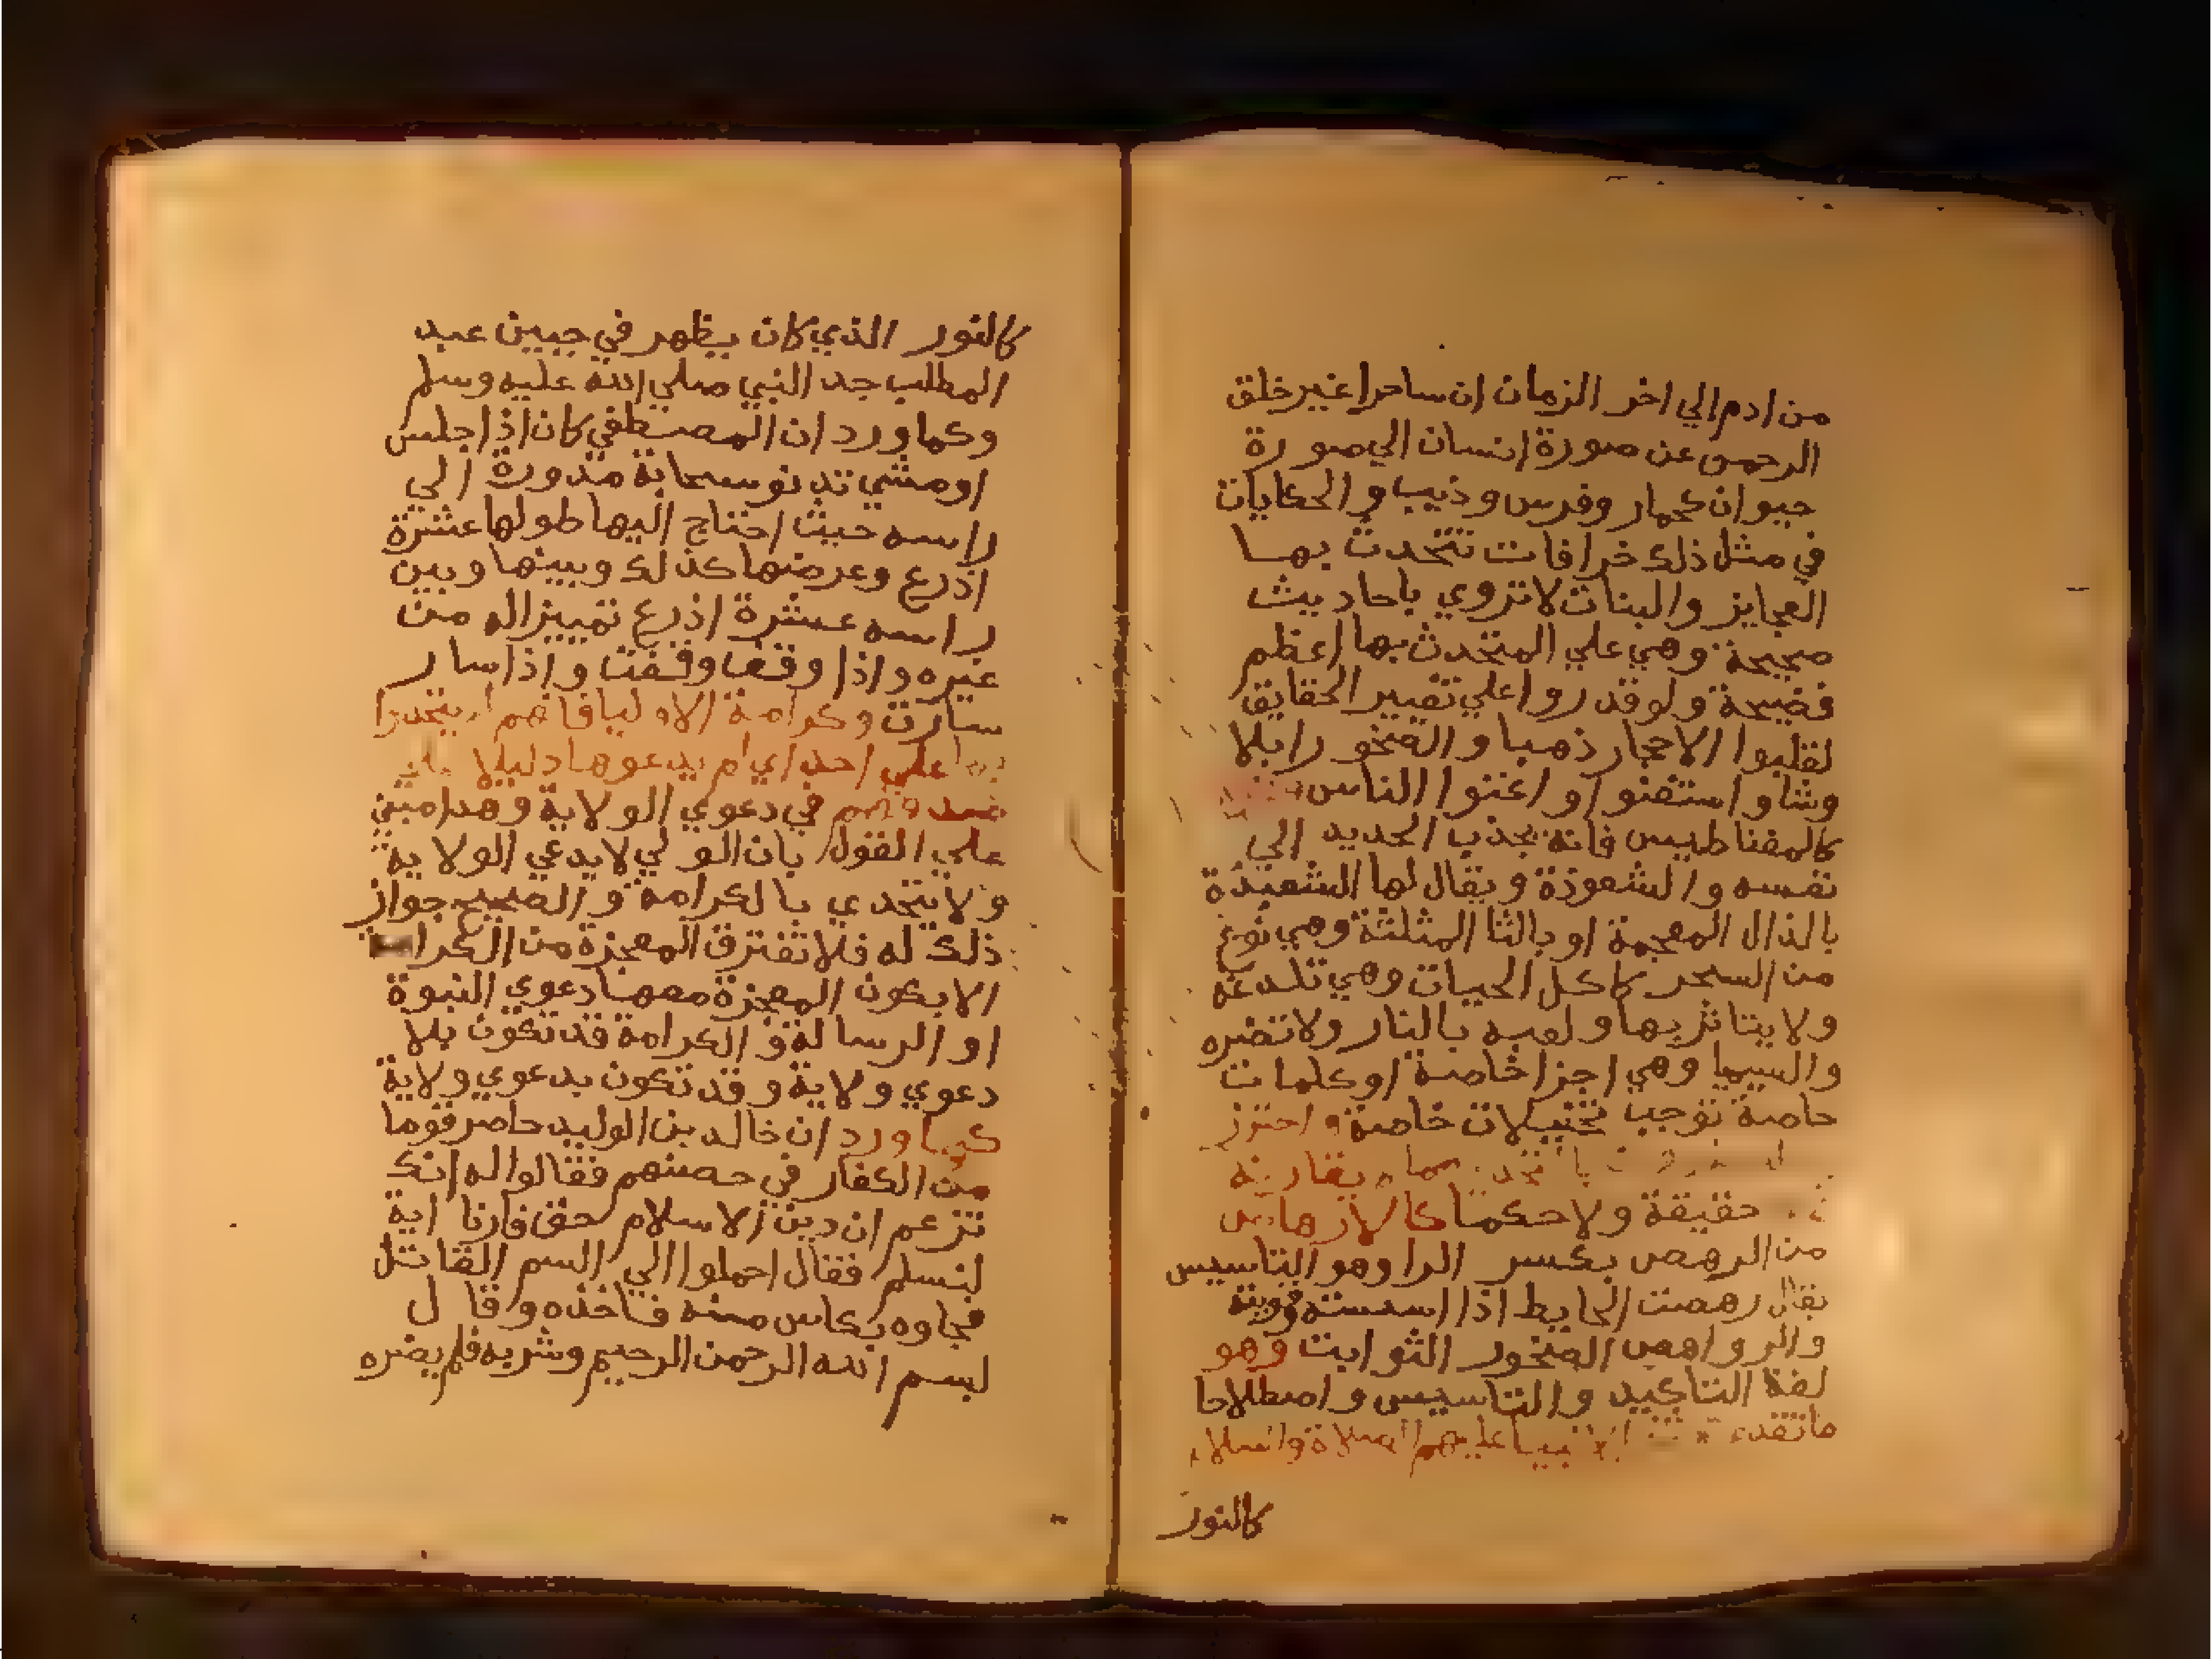 من ادم الي اخر الزمان ان ساحرا غير خلق
الرحمن عن صورة انسان الي صورة
حيوان كحمار وفرس وذيب والحكايات
في مثل ذلك خرافات تتحدث بها
العجايز والبنات لا تروي باحاديث
صحيحة وهي علي المتحدث بها اعظم
فضيحة ولو قدروا علي تغيير الحقايق
لقلبوا الاحجار ذهبا والصخور ابلا
وشاو استغنوا واغنوا الناس
كالمغناطيس فانه يجذب الحديد الي
نفسه والشعوذة ويقال لها الشعبذة
بالذال المعجمة او بالثا المثلثة وهي نوع
من السحر كاكل الحيات وهي تلدغه
ولا يتاثر بها ولعبه بالنار ولا تضره
والسيميا وهي اجزا خاصة او كلمات
خاصة توجب تخييلات خاصة واحترز
يقارنه
حقيقة ولا حكما كالارهاص
من الرهص بكسر الرا وهو التاسيس
يقال رهصت الحايط اذا اسسته وقويته
والرواهص الصخور الثوابت وهو
لغة التاكيد والتاسيس واصطلاحا
ما تقدم الانبيا عليهم الصلاة والسلام
كالنور
كالنور الذي كان يظهر في جبين عبد
المطلب جد النبي صلي الله عليه وسلم
وكما ورد ان المصطفي كان اذا جلس
او مشي تدنو سحابة مدورة الي
راسه حيث احتاج اليها طولها عشرة
اذرع وعرضها كذلك وبينها وبين
راسه عشرة اذرع تمييزا له من
غيره واذا وقف وقفت واذا سار
سارت وكرامة الاوليا فانهم لم يتحدوا
بها علي احد اي لم يدعوها دليلا علي
صدقهم في دعوي الولاية وهذا مبني
علي القول بان الولي لا يدعي الولاية
ولا يتحدي بالكرامة والصحيح جواز
ذلك له فلا تفترق المعجزة من الكرامة
الا بكون المعجزة معها دعوي النبوة
او الرسالة و الكرامة قد تكون بلا
دعوي ولاية وقد تكون بدعوي ولاية
كما ورد ان خالد بن الوليد حاصر قوما
من الكفار في حصنهم فقالوا له انك
تزعم ان دين الاسلام حق فارنا اية
لنسلم فقال احملوا الي السم القاتل
فجاوه بكاس منه فاخذه وقال
بسم الله الرحمن الرحيم وشربه فلم يضره